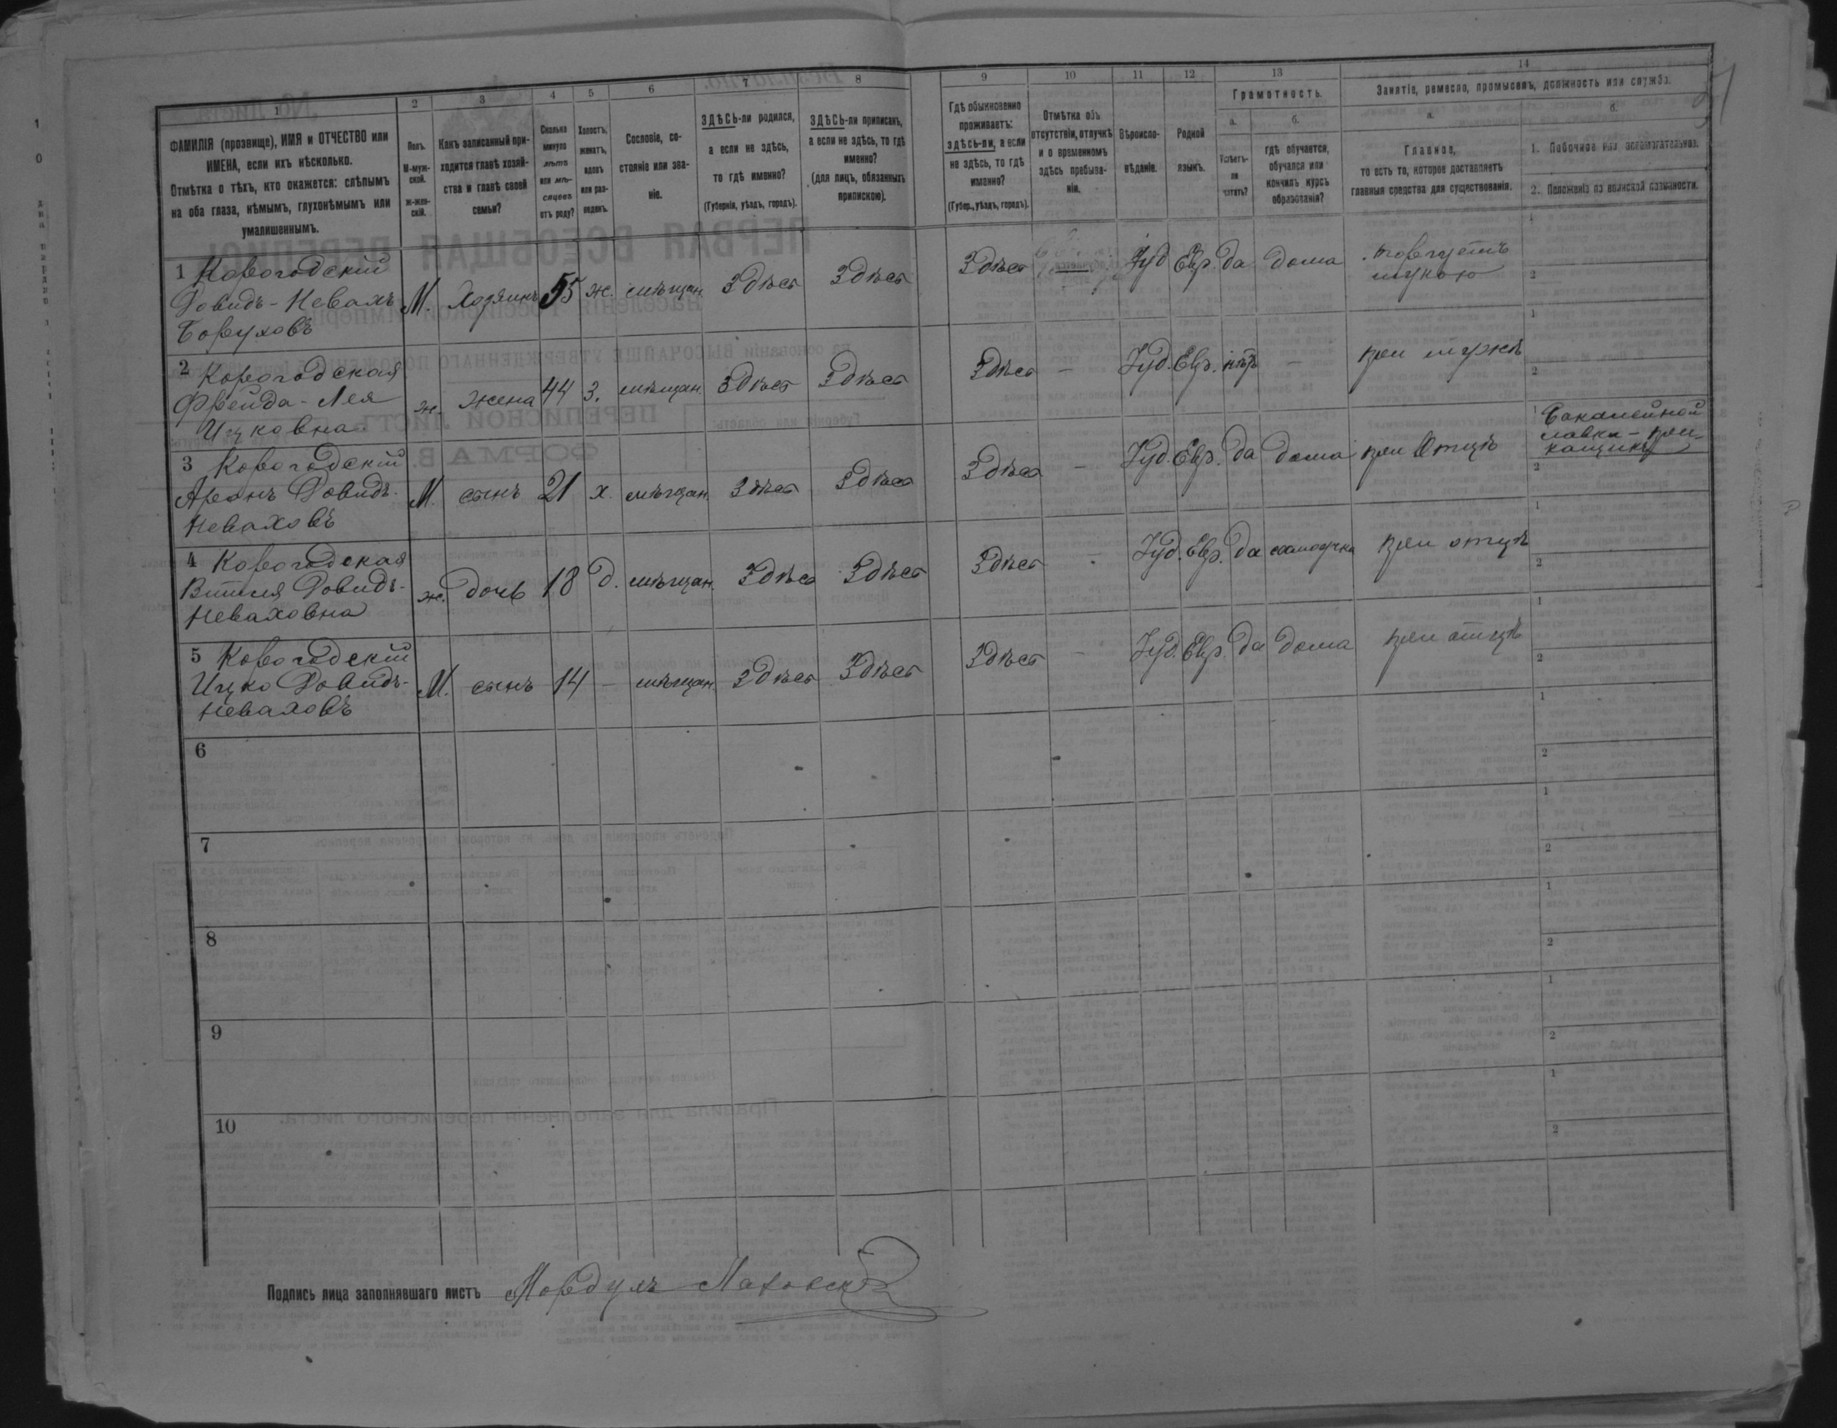 1 2 3 4 5 6 7 8 9 10 11 12 13 14
ФАМИЛІЯ (прозвище), ИМЯ и ОТЧЕСТВО или
ИМЕНА, если ихъ нѣсколько.
Отмѣтка о тѣхъ, кто окажется: слѣпымъ
на оба глаза, нѣмымъ, глухонѣмымъ или
умалишеннымъ.
Полъ.
М-муж-
ской.
ж-жен-
скій.
Какъ записанный при-
ходится главѣ хозяй-
ства и главѣ своей
семьи?
Сколько
минуло
лѣтъ
или мѣ-
сяцевъ
отъ роду?
Холостъ,
женатъ,
вдовъ
или раз-
веденъ.
Сословіе, со-
стояніе или зва-
ніе.
ЗДѢСЬ-ли родился,
а если не здѣсь,
то гдѣ именно?
(Губернія, уѣздъ, городъ).
ЗДѢСЬ-ли приписанъ,
а если не здѣсь, то гдѣ
именно?
(для лицъ, обязанныхъ
припиской).
Гдѣ обыкновенно
проживаетъ:
здѣсь-ли, а если
не здѣсь, то гдѣ
именно?
(Губер., уѣздъ, городъ).
Отмѣтка объ
отсутствіи, отлучкѣ
и о временномъ
здѣсь пребыва-
ніи.
Вѣроиспо-
вѣданіе.
Родной
языкъ.
Грамотность.
а.
Умѣетъ-
ли
читать?
б.
гдѣ обучается,
обучался или
кончилъ курсъ
образованія?
Занятіе, ремесло, промыселъ, должность или служба.
а.
Главное,
то есть то, которое доставляетъ
главныя средства для существованія.
б.
1. Побочное или вспомогательное.
2. Положеніе по воинской повинности.
1 Новогодскій
Довидъ-Невахъ
Боруховъ
М. Хозяинъ 55 ж. мѣщан. Здѣсь Здѣсь Здѣсь Іуд. Евр. да дома торгуетъ
мукою
2 Новогодская
Фрейда-Лея
Ицковна
ж. жена 44 З. мѣщан. Здѣсь Здѣсь Здѣсь - Іуд. Евр. нѣтъ - при мужѣ
3 Новогодскій
Аронъ Довидъ-
Неваховъ
М. сынъ 21 х. мѣщан. Здѣсь Здѣсь Здѣсь - Іуд. Евр. да дома при Отцѣ
Бакалейной
лавки - при-
кащикъ
4 Новогодская
Довидъ-
Неваховна
ж. дочь 18 д. мѣщан. Здѣсь Здѣсь Здѣсь - Іуд. Евр. да самоучка при отцѣ
5 Новогодскій
Ицко Довидъ-
Неваховъ
М. сынъ 14 - мѣщан. Здѣсь Здѣсь Здѣсь - Іуд. Евр. да дома при отцѣ
6
7
8
9
10
Подпись лица заполнявшаго листъ Мордухъ